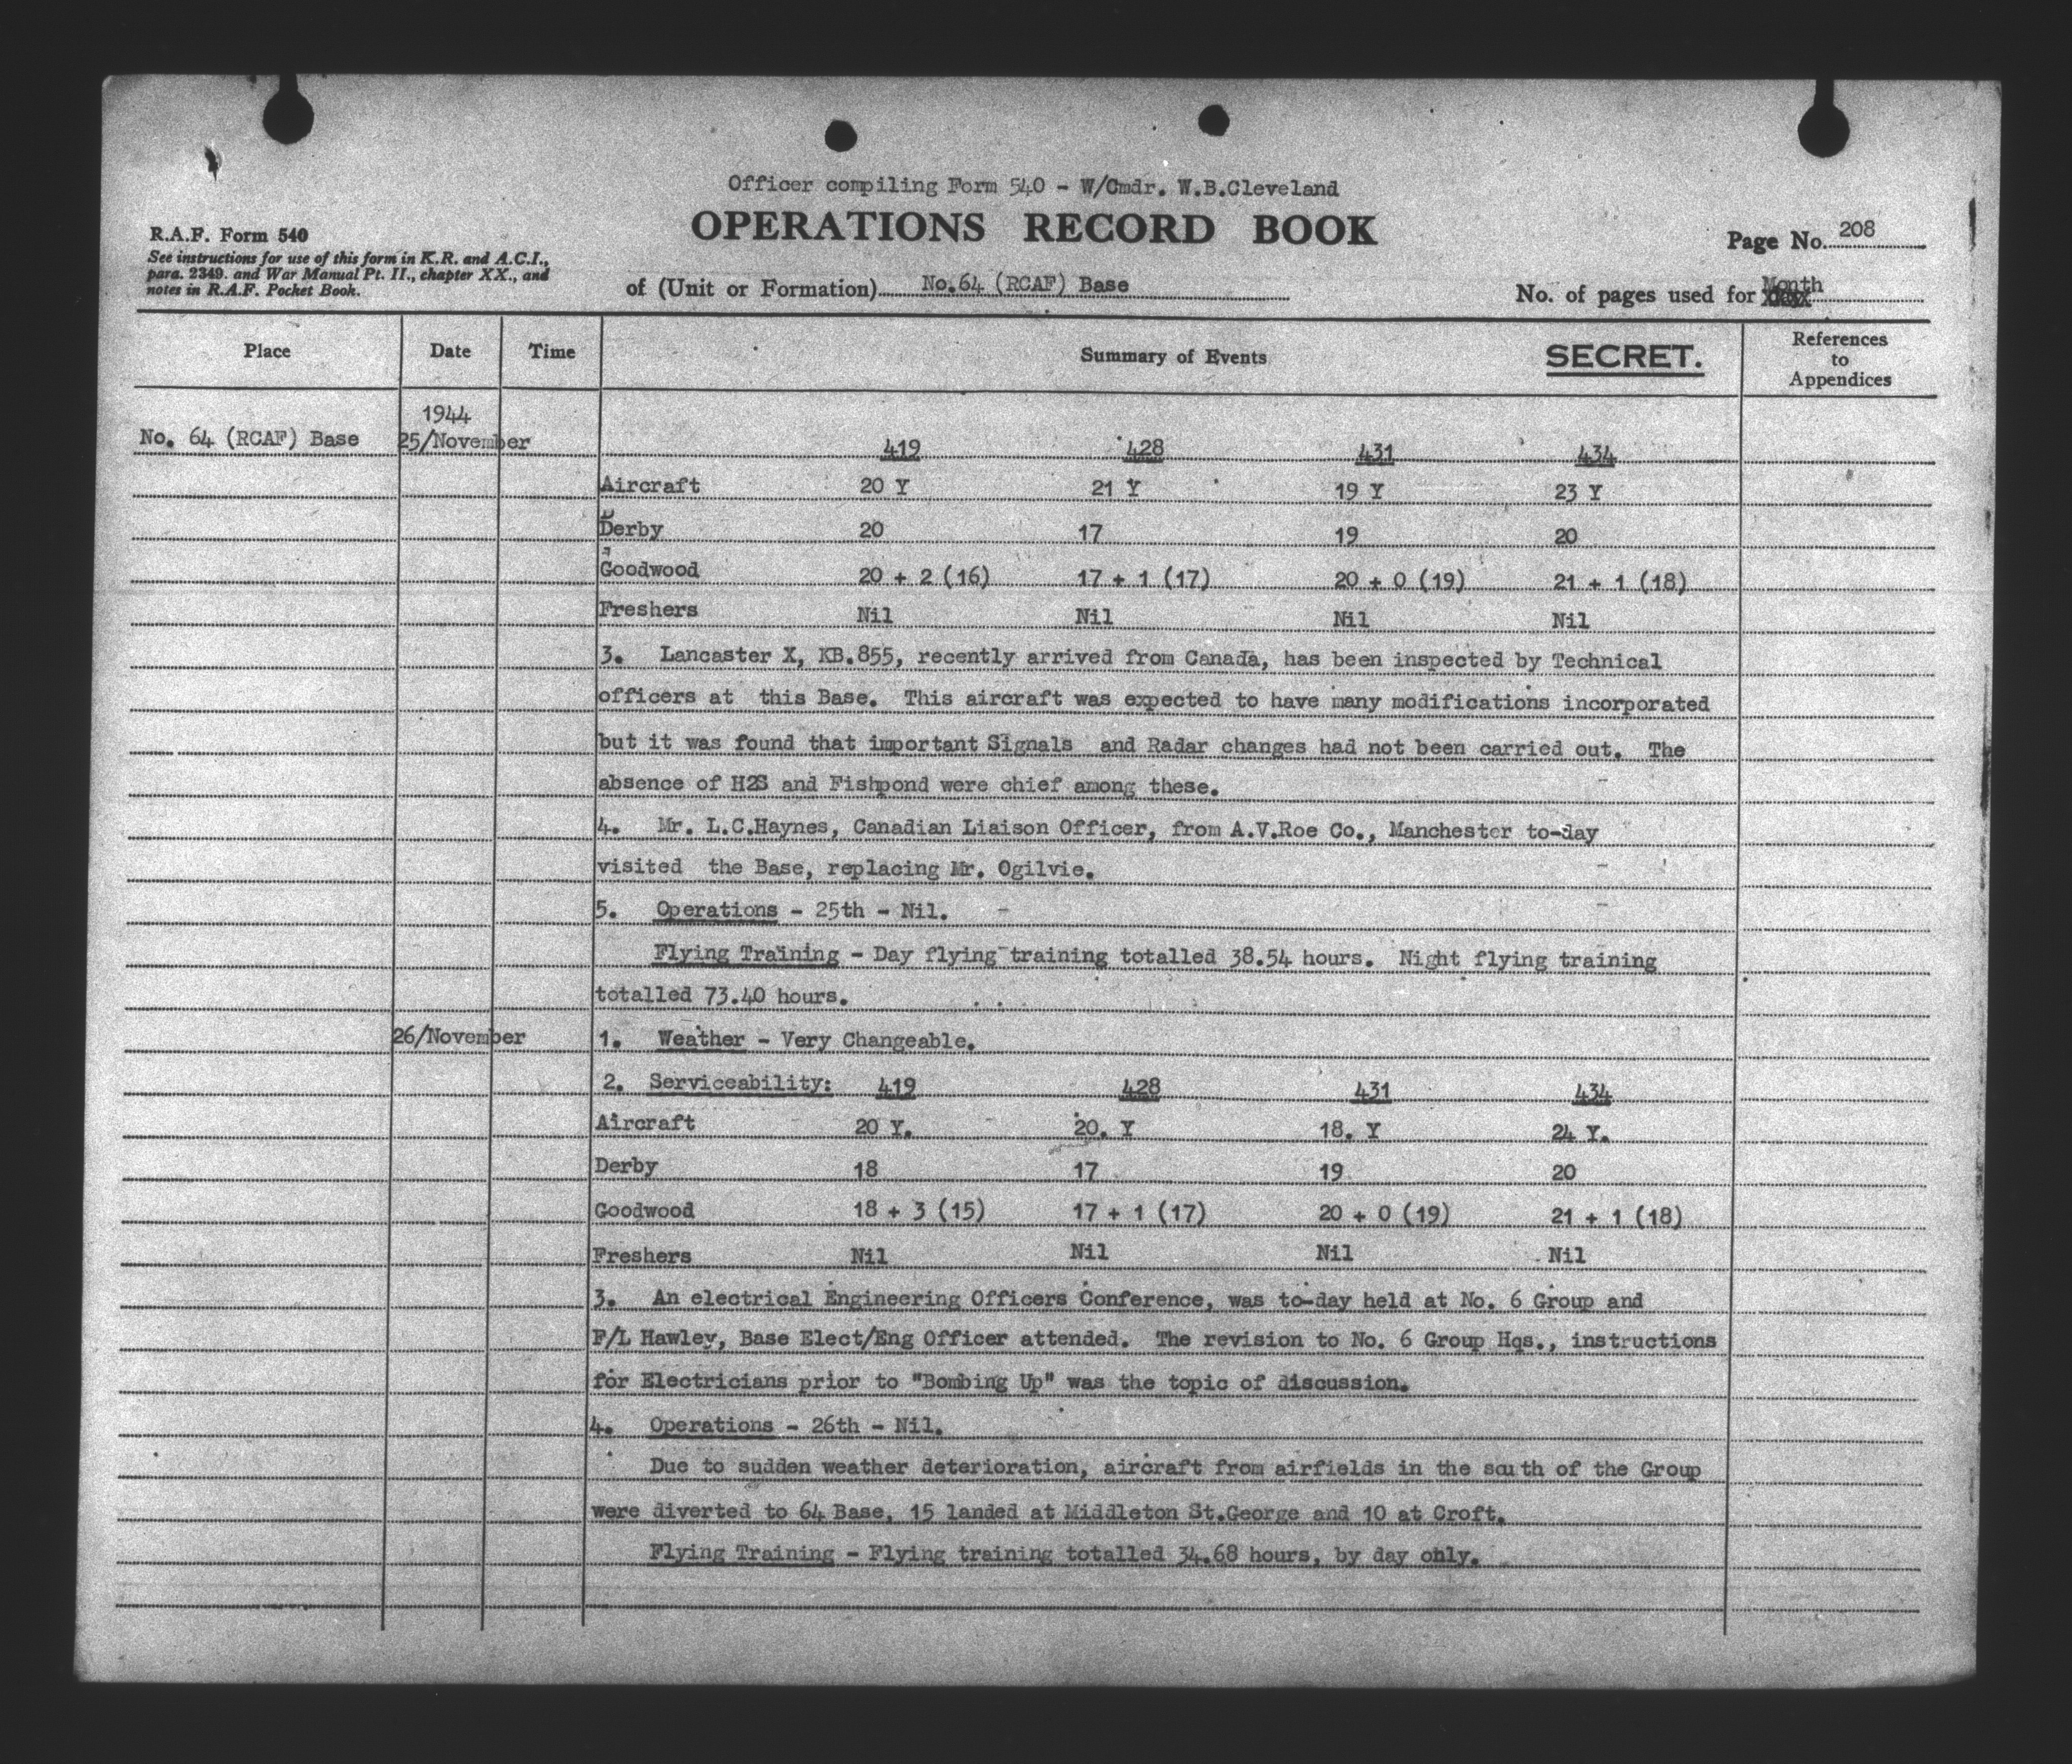 Officer compiling Form 540 - W/Cmdr. W.B.Cleveland
OPERATIONS RECORD BOOK
R.A.F. Form 540
See instructions for use of this form in K.R. and A.C.I.,
para. 2349. and War Manual Pt. II., chapter XX., and
notes in R.A.F. Pocket Book.
Page No. 208
of (Unit or Formation) No.64 (RCAF) Base
No. of pages used for Month
Place Date Time Summary of Events SECRET. References to Appendices
1944
No. 64 (RCAF) Base 25/November 419 428 431 434
Aircraft 20 Y 21 Y 19 Y 23 Y
Derby 20 17 19 20
Goodwood 20 + 2 (16) 17 + 1 (17) 20 + 0 (19) 21 + 1 (18)
Freshers Nil Nil Nil Nil
3. Lancaster X, KB.855, recently arrived from Canada, has been inspected by Technical
officers at this Base. This aircraft was expected to have many modifications incorporated
but it was found that important Signals and Radar changes had not been carried out. The
absence of H2S and Fishpond were chief among these.
4. Mr. L.C.Haynes, Canadian Liaison Officer, from A.V.Roe Co., Manchester to-day
visited the Base, replacing Mr. Ogilvie.
5. Operations - 25th - Nil.
Flying Training - Day flying training totalled 38.54 hours. Night flying training
totalled 73.40 hours.
26/November 1. Weather - Very Changeable.
2. Serviceability: 419 428 431 434
Aircraft 20 Y. 20. Y 18. Y 24 Y.
Derby 18 17 19 20
Goodwood 18 + 3 (15) 17 + 1 (17) 20 + 0 (19) 21 + 1 (18)
Freshers Nil Nil Nil Nil
3. An electrical Engineering Officers Conference, was to-day held at No. 6 Group and
F/L Hawley, Base Elect/Eng Officer attended. The revision to No. 6 Group Hqs., instructions
for Electricians prior to "Bombing Up" was the topic of discussion.
4. Operations - 26th - Nil.
Due to sudden weather deterioration, aircraft from airfields in the south of the Group
were diverted to 64 Base, 15 landed at Middleton St.George and 10 at Croft.
Flying Training - Flying training totalled 34.68 hours, by day only.